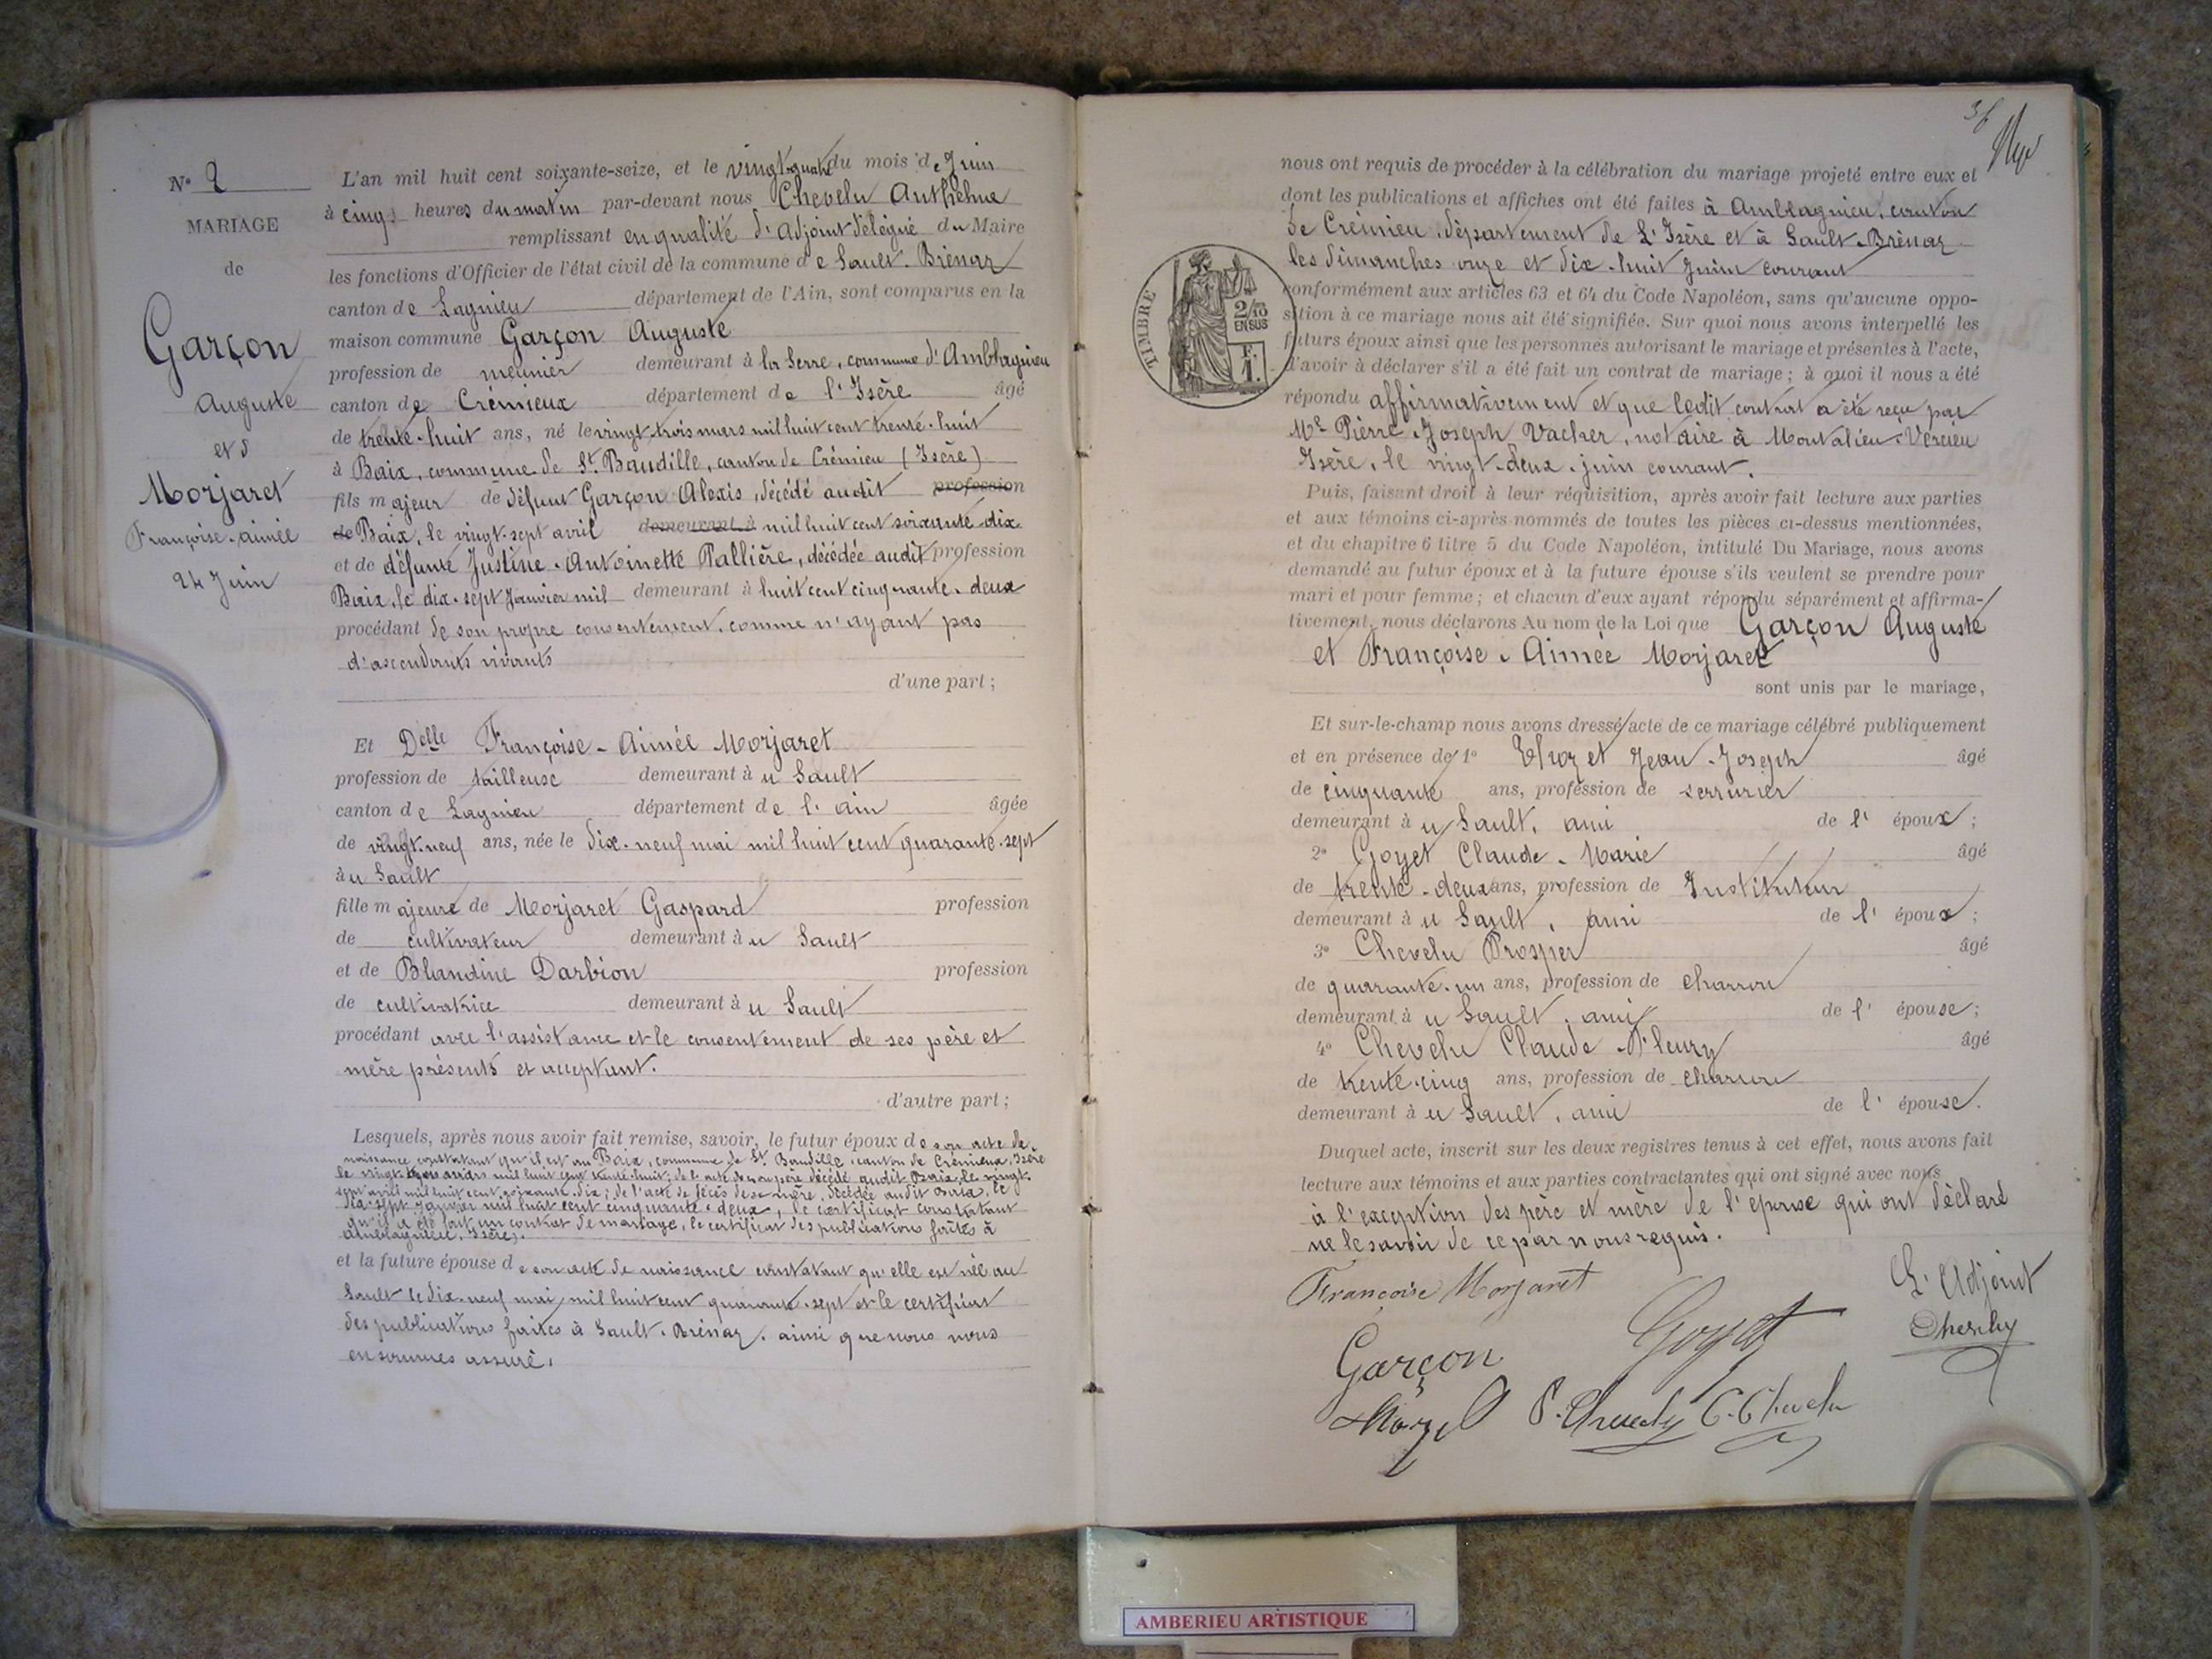 N° 2
MARIAGE
de
Garçon
Auguste
et
Morjaret
Françoise-aimée
24 Juin
L'an mil huit cent soixante-seize, et le vingt-quatre du mois de Juin
à cinq heures du matin par-devant nous Chevelu Anthelme
remplissant en qualité d'adjoint délégué du Maire
les fonctions d'Officier de l'état civil de la commune de Sault-Brénaz
canton de Lagnieu département de l'Ain, sont comparus en la
maison commune Garçon Auguste
profession de meunier demeurant à la Serre, commune d'Amblagnieu
canton de Crémieux département de l'Isère âgé
de trente-huit ans, né le vingt-trois mars mil huit cent trente-huit
à Baix, commune de St. Baudille, canton de Crémieu (Isère)
fils majeur de défunt Garçon Alexis, décédé audit profession
de Baix, le vingt-sept avril demeurant à mil huit cent soixante-dix
et de défunte Justine-Antoinette Pallière, décédée audit profession
Baix, le dix-sept Janvier mil demeurant à huit cent cinquante-deux
procédant de son propre consentement, comme n'ayant pas
d'ascendants vivants
d'une part ;
Et Delle Françoise-Aimée Morjaret
profession de tailleuse demeurant à u Sault
canton de Lagnieu département de l'ain âgée
de vingt-neuf ans, née le dix-neuf mai mil huit cent quarante-sept
à u Sault
fille majeure de Morjaret Gaspard profession
de cultivateur demeurant à u Sault
et de Blandine Darbion profession
de cultivatrice demeurant à u Sault
procédant avec l'assistance et le consentement de ses père et
mère présents et acceptant.
d'autre part ;
Lesquels, après nous avoir fait remise, savoir, le futur époux de son acte de
naissance constatant qu'il est né au Baix, commune de St. Baudille, canton de Crémieux, Isère
le vingt-trois mars mil huit cent trente-huit; de l'acte de son père décédé audit Baix, le vingt-
sept avril mil huit cent soixante-dix; de l'acte de décès de sa mère, décédée audit Baix, le
dix-sept janvier mil huit cent cinquante-deux, le certificat constatant
qu'il a été fait un contrat de mariage, le certificat des publications faites à
Amblagnieu, Isère).
et la future épouse de son acte de naissance constatant qu'elle est née au
Sault le dix-neuf mai mil huit cent quarante-sept et le certificat
des publications faites à Sault-Brénaz. ainsi que nous nous
en sommes assuré.
36
nous ont requis de procéder à la célébration du mariage projeté entre eux et
dont les publications et affiches ont été faites à Amblagnieu, canton
de Crémieu, département de L'Isère et à Sault-Brénaz
les dimanches onze et dix-huit Juin courant
conformément aux articles 63 et 64 du Code Napoléon, sans qu'aucune oppo-
sition à ce mariage nous ait été signifiée. Sur quoi nous avons interpellé les
futurs époux ainsi que les personnes autorisant le mariage et présentes à l'acte,
d'avoir à déclarer s'il a été fait un contrat de mariage ; à quoi il nous a été
répondu affirmativement et que ledit contrat a été reçu par
Me Pierre-Joseph Vacher, notaire à Montalieu-Vercieu
Isère, le vingt-deux juin courant.
TIMBRE
2/10
EN SUS
F.
1.
Puis, faisant droit à leur réquisition, après avoir fait lecture aux parties
et aux témoins ci-après nommés de toutes les pièces ci-dessus mentionnées,
et du chapitre 6 titre 5 du Code Napoléon, intitulé Du Mariage, nous avons
demandé au futur époux et à la future épouse s'ils veulent se prendre pour
mari et pour femme ; et chacun d'eux ayant répondu séparément et affirma-
tivement, nous déclarons Au nom de la Loi que Garçon Auguste
et Françoise-Aimée Morjaret
sont unis par le mariage,
Et sur-le-champ nous avons dressé acte de ce mariage célébré publiquement
et en présence de 1° Thozet Jean-Joseph âgé
de cinquante ans, profession de serrurier
demeurant à u Sault, ami de l'époux ;
2° Goyet Claude-Marie âgé
de trente-deux ans, profession de Instituteur
demeurant à u Sault, ami de l'époux ;
3° Chevelu Prosper âgé
de quarante-un ans, profession de charron
demeurant à u Sault, ami de l'épouse ;
4° Chevelu Claude-Fleury âgé
de trente-cinq ans, profession de charron
demeurant à u Sault, ami de l'épouse.
Duquel acte, inscrit sur les deux registres tenus à cet effet, nous avons fait
lecture aux témoins et aux parties contractantes qui ont signé avec nous
à l'exception des père et mère de l'épouse qui ont déclaré
ne le savoir de ce par nous requis.
Françoise Morjaret
L'Adjoint
Chevelu
Goyet
Garçon
Thozet P. Chevelu C. Chevelu
AMBERIEU ARTISTIQUE